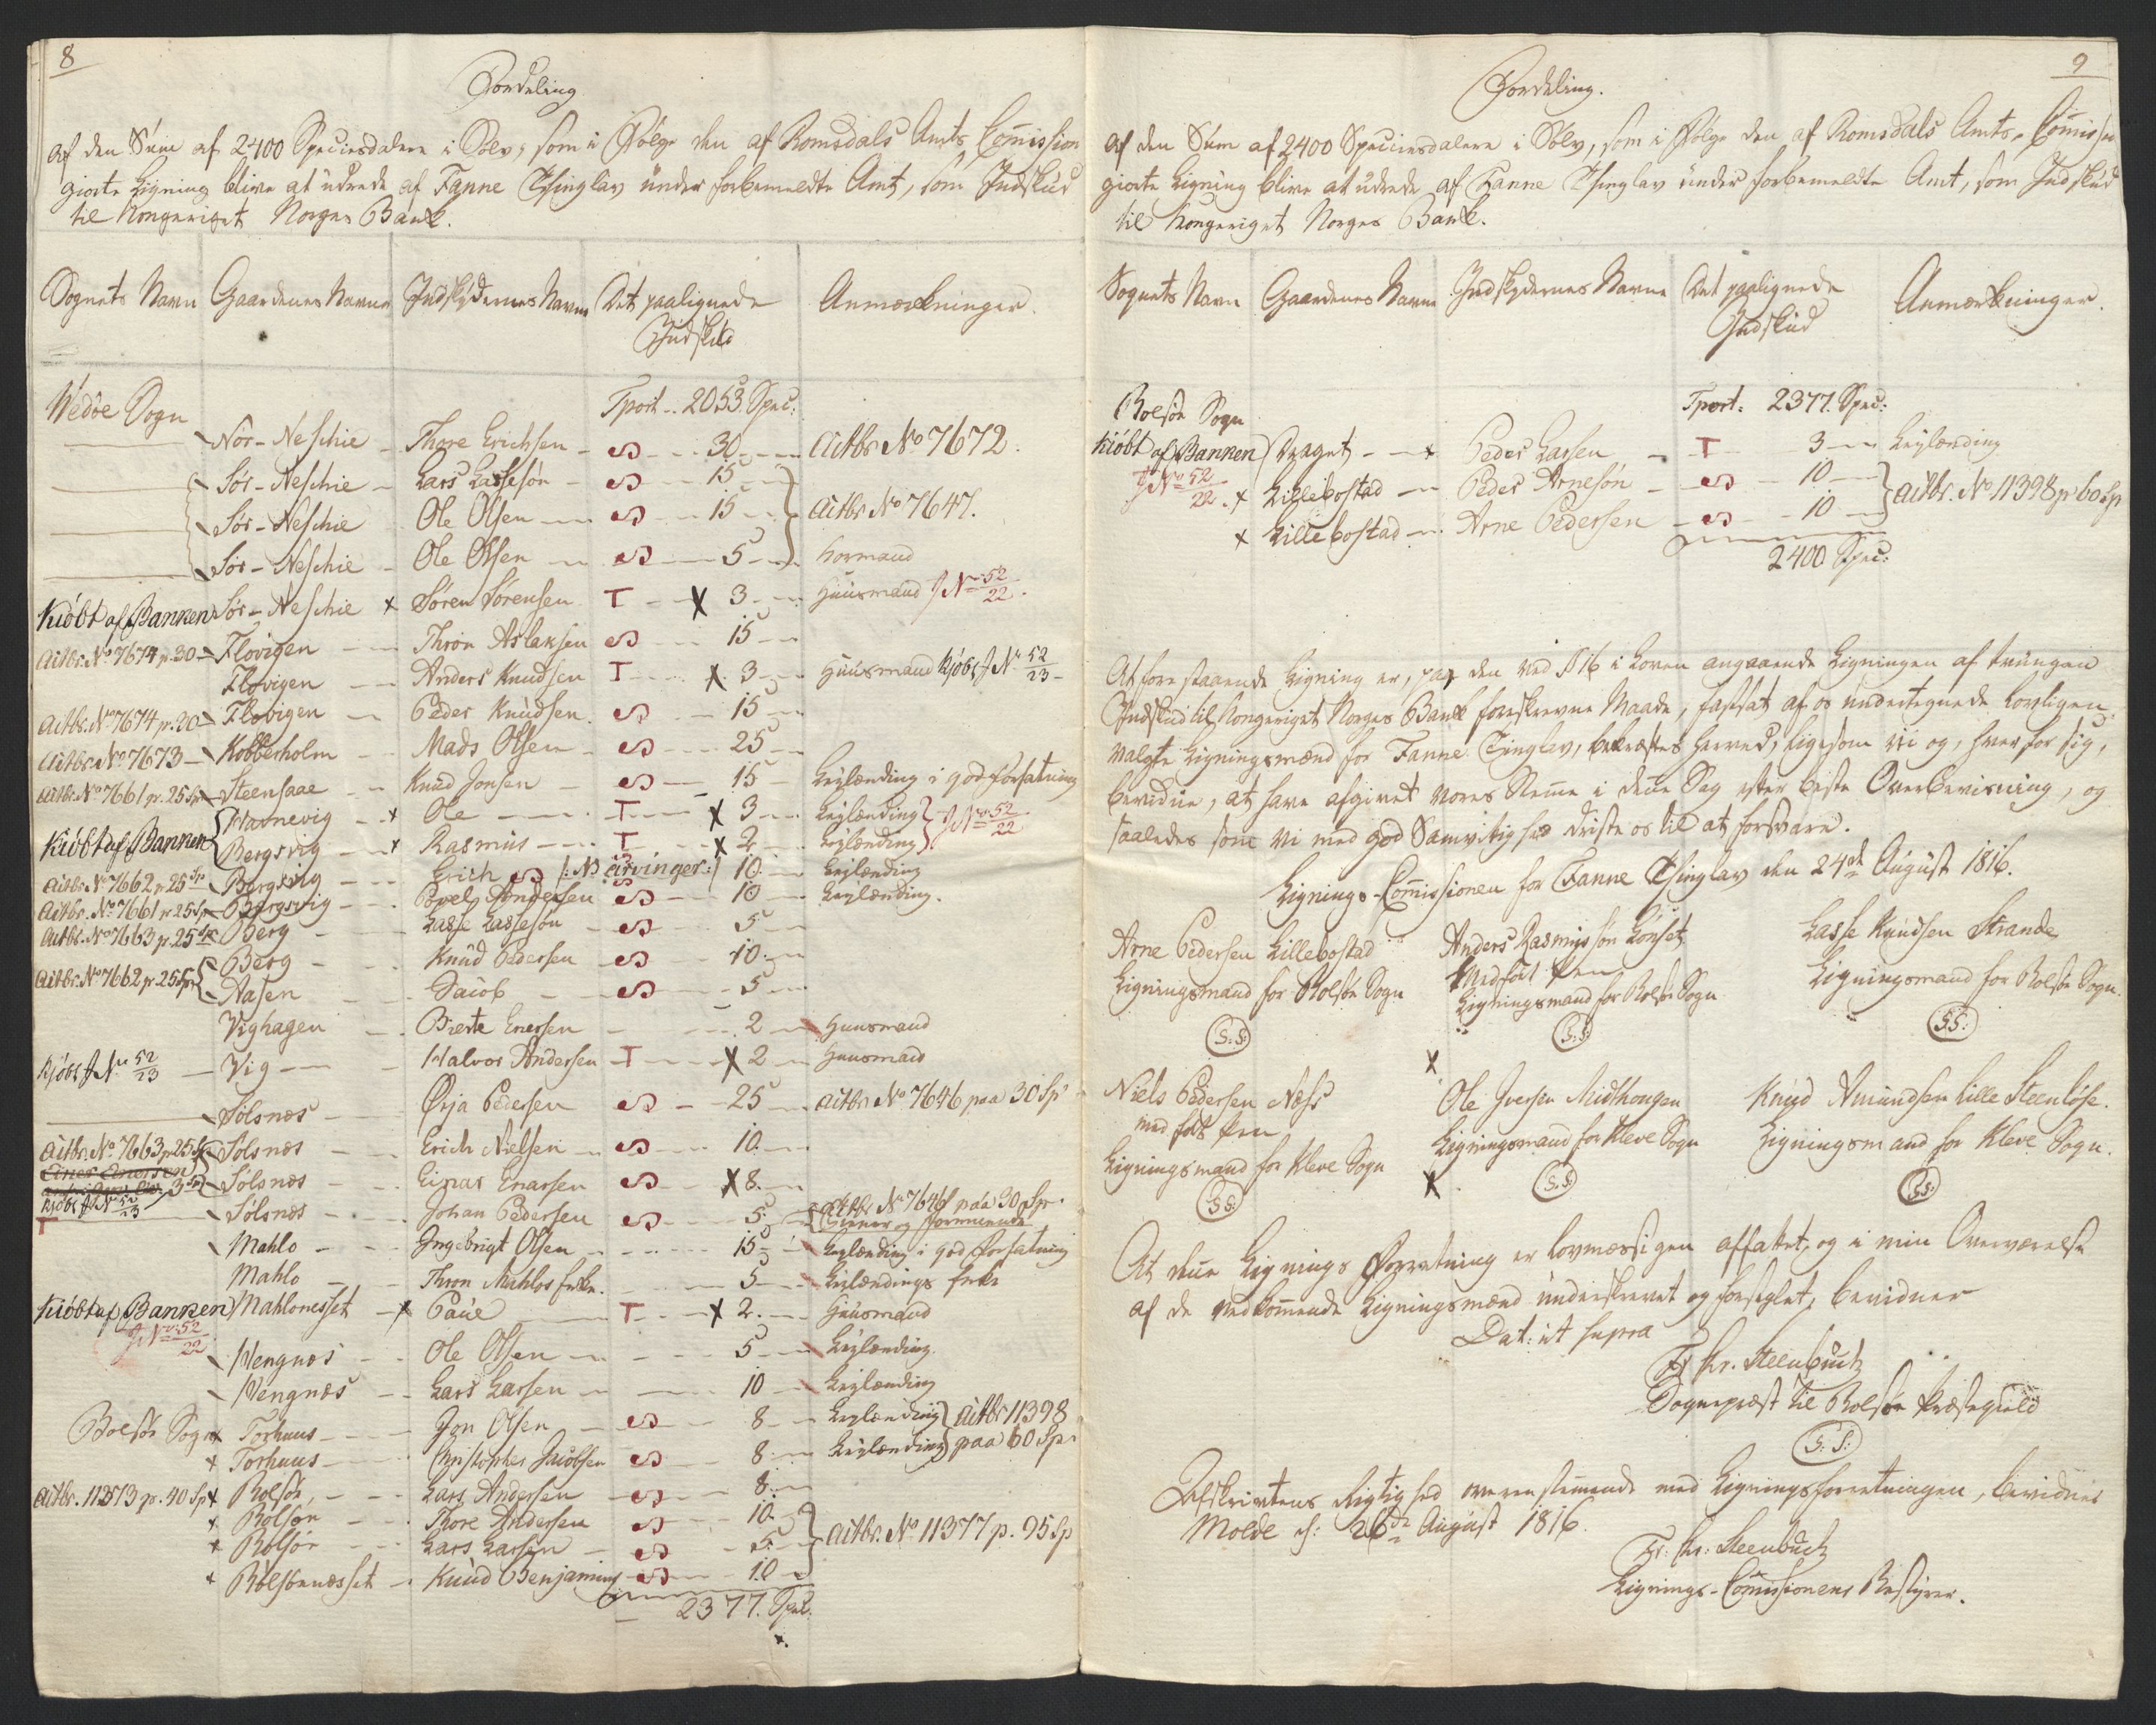 8
Fordeling
af den Sum af 2400 Speciesdalere i Sölv, som i Fölge den af Romsdals Amts Commission
giorte Ligning blive at udrede af Fanne Thinglav under forbemeldte Amt, som Indskud
til Kongeriget Norges Bank.
Sognets Navn Gaardenes Navne Indskydernes Navne Det paalignede Indskud Anmærkninger.
Wedöe Sogn Tport .. 2053. Spec:
Nör-Neschie - Thore Erichsen - S - 30 - Actbr No 7672.
Sör-Neschie - Lars Lassesön - S - 15
Sör-Neschie Ole Olsen - S - 15 - Actbr No 7647.
Sör-Neschie - Ole Olsen - S - 5 -
Kiöbt af Banken Sör-Neschie x Sören Sörensen T - x 3 - Huusmand J No 52/22.
Actbr. No 7674 p. 30 - Flovigen - Thron Aslaksen S - 15
Flovigen - Anders Knudsen T - x 3 - Huusmand Kjöbt J No 52/23
Actbr. No 7674 p. 20 - Flovigen - Peder Knudsen. S - 15
Actbr No 7673 - Kobberholm - Mads Olsen - S - 25
Actbr. No 7661 p. 25 Sp - Steensaae - Knud Jonsen - S - 15 - Leylænding i god Forfatning
Havnevig - x Ole - T - x 3 - Leylænding
Kiöbt af Banken Bergsvig - x Rasmus - T - x 2 - Leylænding J No 52/22
Actbr. No 7662 p. 25 Sp Bergsvig - Erich S /: N3 arvinger :/ 10. - Leylænding
Actbr. No 7661 p. 25 Sp - Bergsvig - Povel Andersen S - 10 - Leylænding.
Actbr. No 7663 p. 25 Sp Berg - Lasse Lassesön - S - 5
Berg - Knud Pedersen - S - 10.
Actbr. No 7662 p. 25 Sp Aasen - Jacob - S - 5
Vighagen - Bierte Enersen - 2 - Huusmand
Kjöbt J No 52/23 - Vig - Halvor Andersen - T - x 2 - Huusmand
Sölsnæs - Örja Pedersen S - 25 - Actbr No 7646 paa 30 Sp
Actbr. No 7663 p 25 Sp Sölsnæs - Erich Nielsen - S - 10.
3 Sp Sölsnæs - Einar Enarsen S - x 8.
Kjöbt J No 52/23 Sölsnæs - Johan Pedersen S - 5. Actbr No 7646 paa 30 Sp.
T
Mahlo - Ingebrigt Olsen - 15 - Leylænding i god Forfatning
Mahlo - Thron Mahlos Enke. - 5 - Leylændings Enke
Kiöbt af Banken Mahlonesset - x Paul T - x 2. - Huusmand
J No 52/22
Wengnæs - Ole Olsen - 5 - Leylænding.
Wengnæs - Lars Larsen - 10 - Leylænding
Bolsöe Sogn x Torhuus - Jon Olsen - S - 8 - Leylænding Actbr 11398
x Torhuus - Christopher Jacobsen S - 8 - Leylænding paa 60 Sp.
Actbr. 11373 p. 40 Sp x Bolsör, - Lars Andersen - S - 8.
x Bolsör - Thore Andersen S - 10.
x Bolsör - Lars Larsen - S - 5. Actbr. No 11377 p. 95 Sp
x Bolsönæsset - Knud Benjamins S - 10
2377. Spec:
9
Fordeling.
af den Sum af 2400 Speciesdalere i Sölv, som i Fölge den af Romsdals Amts-Commission
giorte Ligning blive at udrede af Fanne Thinglav under forbemeldte Amt, som Indskud
til Kongeriget Norges Bank.
Sognets Navn Gaardenes Navne Indskydernes Navne Det paalignede Indskud Anmærkninger.
Bolsöe Sogn Tport: 2377. Spec:
Kiöbt af Banken Draget - x Peder Larsen - T - 3 - Leylænding
J No 52/22. x Lillebostad - Peder Arnesön - S - 10
x Lillebostad - Arne Pedersen - S - 10 Actbr. No 11398 p 60 Sp
2400 Spec:
At forestaaende Ligning er, paa den ved § 16 i Loven angaaende Ligningen af tvungen
Indskud til Kongeriget Norges Bank foreskrevne Maade, fastsat af os undertegnede lovligen
valgte Ligningsmænd for Fanne Tinglav, bekræftes herved, ligesom vi og, hver for sig,
bevidne, at have afgivet vores Stemme i denne Sag efter beste Overbeviisning, og
saaledes som vi med god Samvittighed driste os til at forsvare.
Lignings-Commissionen for Fanne Thinglav den 24de August 1816.
Arne Pedersen Lillebostad Anders Rasmussön Lönset Lasse Knudsen Strande
Med fört Pen
Ligningsmand for Bolsöe Sogn Ligningsmand for Bolsöe Sogn Ligningsmand for Bolsöe Sogn.
(S.S.) (S.S.) (S.S.)
x
Niels Pedersen Næss Ole Iversen Midthougen Knud Amundsen Lille Steenlöse.
med fört Pen
Ligningsmand for Kleve Sogn Ligningsmand for Kleve Sogn Ligningsmand for Kleve Sogn.
(S.S.) x (S.S.) (S.S.)
At denne Lignings Forretning er lovmæssigen affattet, og i min Overværelse
af de vedkommende Ligningsmænd underskrevet og forseglet, bevidner
Dat: ut supra
Fr. Chr. Steenbuch
Sognepræst til Bolsöe Præstegield
(S.S.)
Afskrivtens Rigtighed overensstemmende med Ligningsforretningen, bevidner
Molde d: 26de August 1816.
Fr: Chr: Steenbuch
Lignings-Commissionens Bestyrer.